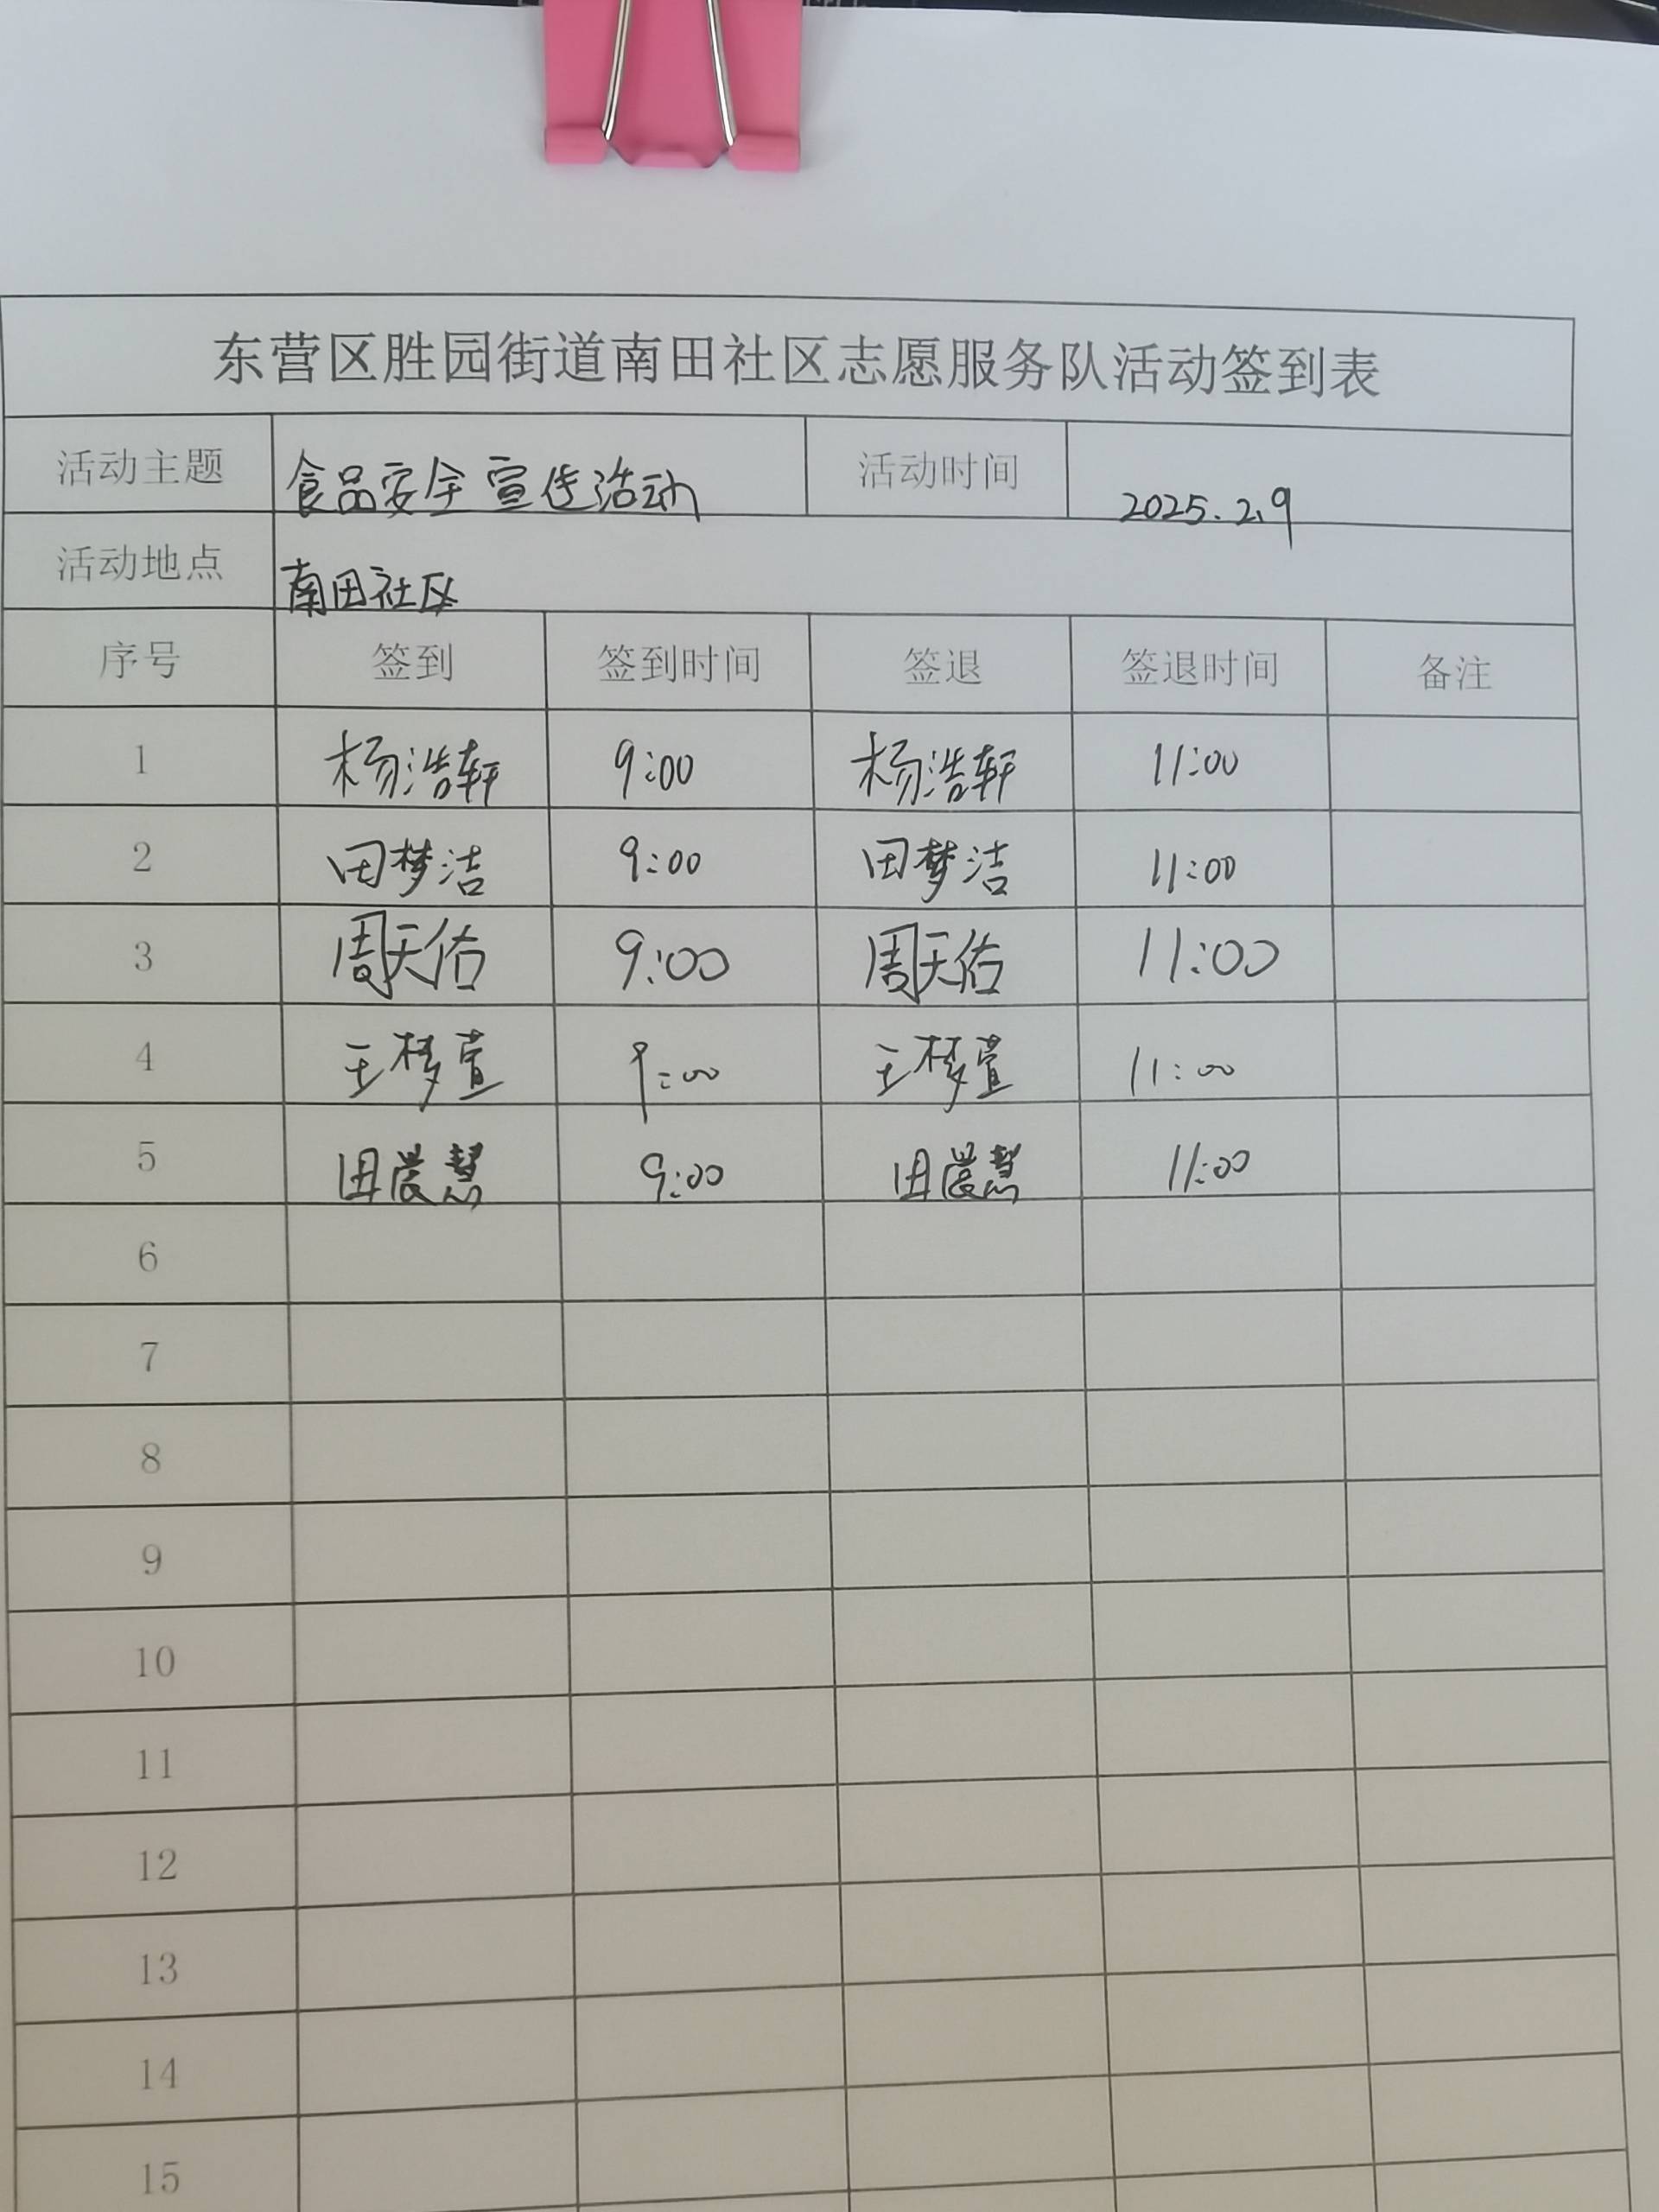 东营区胜园街道南田社区志愿服务队活动签到表
活动主题 食品安全宣传活动 活动时间 2025.2.9
活动地点 南田社区
序号 签到 签到时间 签退 签退时间 备注
1 杨浩轩 9:00 杨浩轩 11:00
2 田梦洁 9:00 田梦洁 11:00
3 周天佑 9:00 周天佑 11:00
4 王梦萱 9:00 王梦萱 11:00
5 田晨慧 9:00 田晨慧 11:00
6
7
8
9
10
11
12
13
14
15